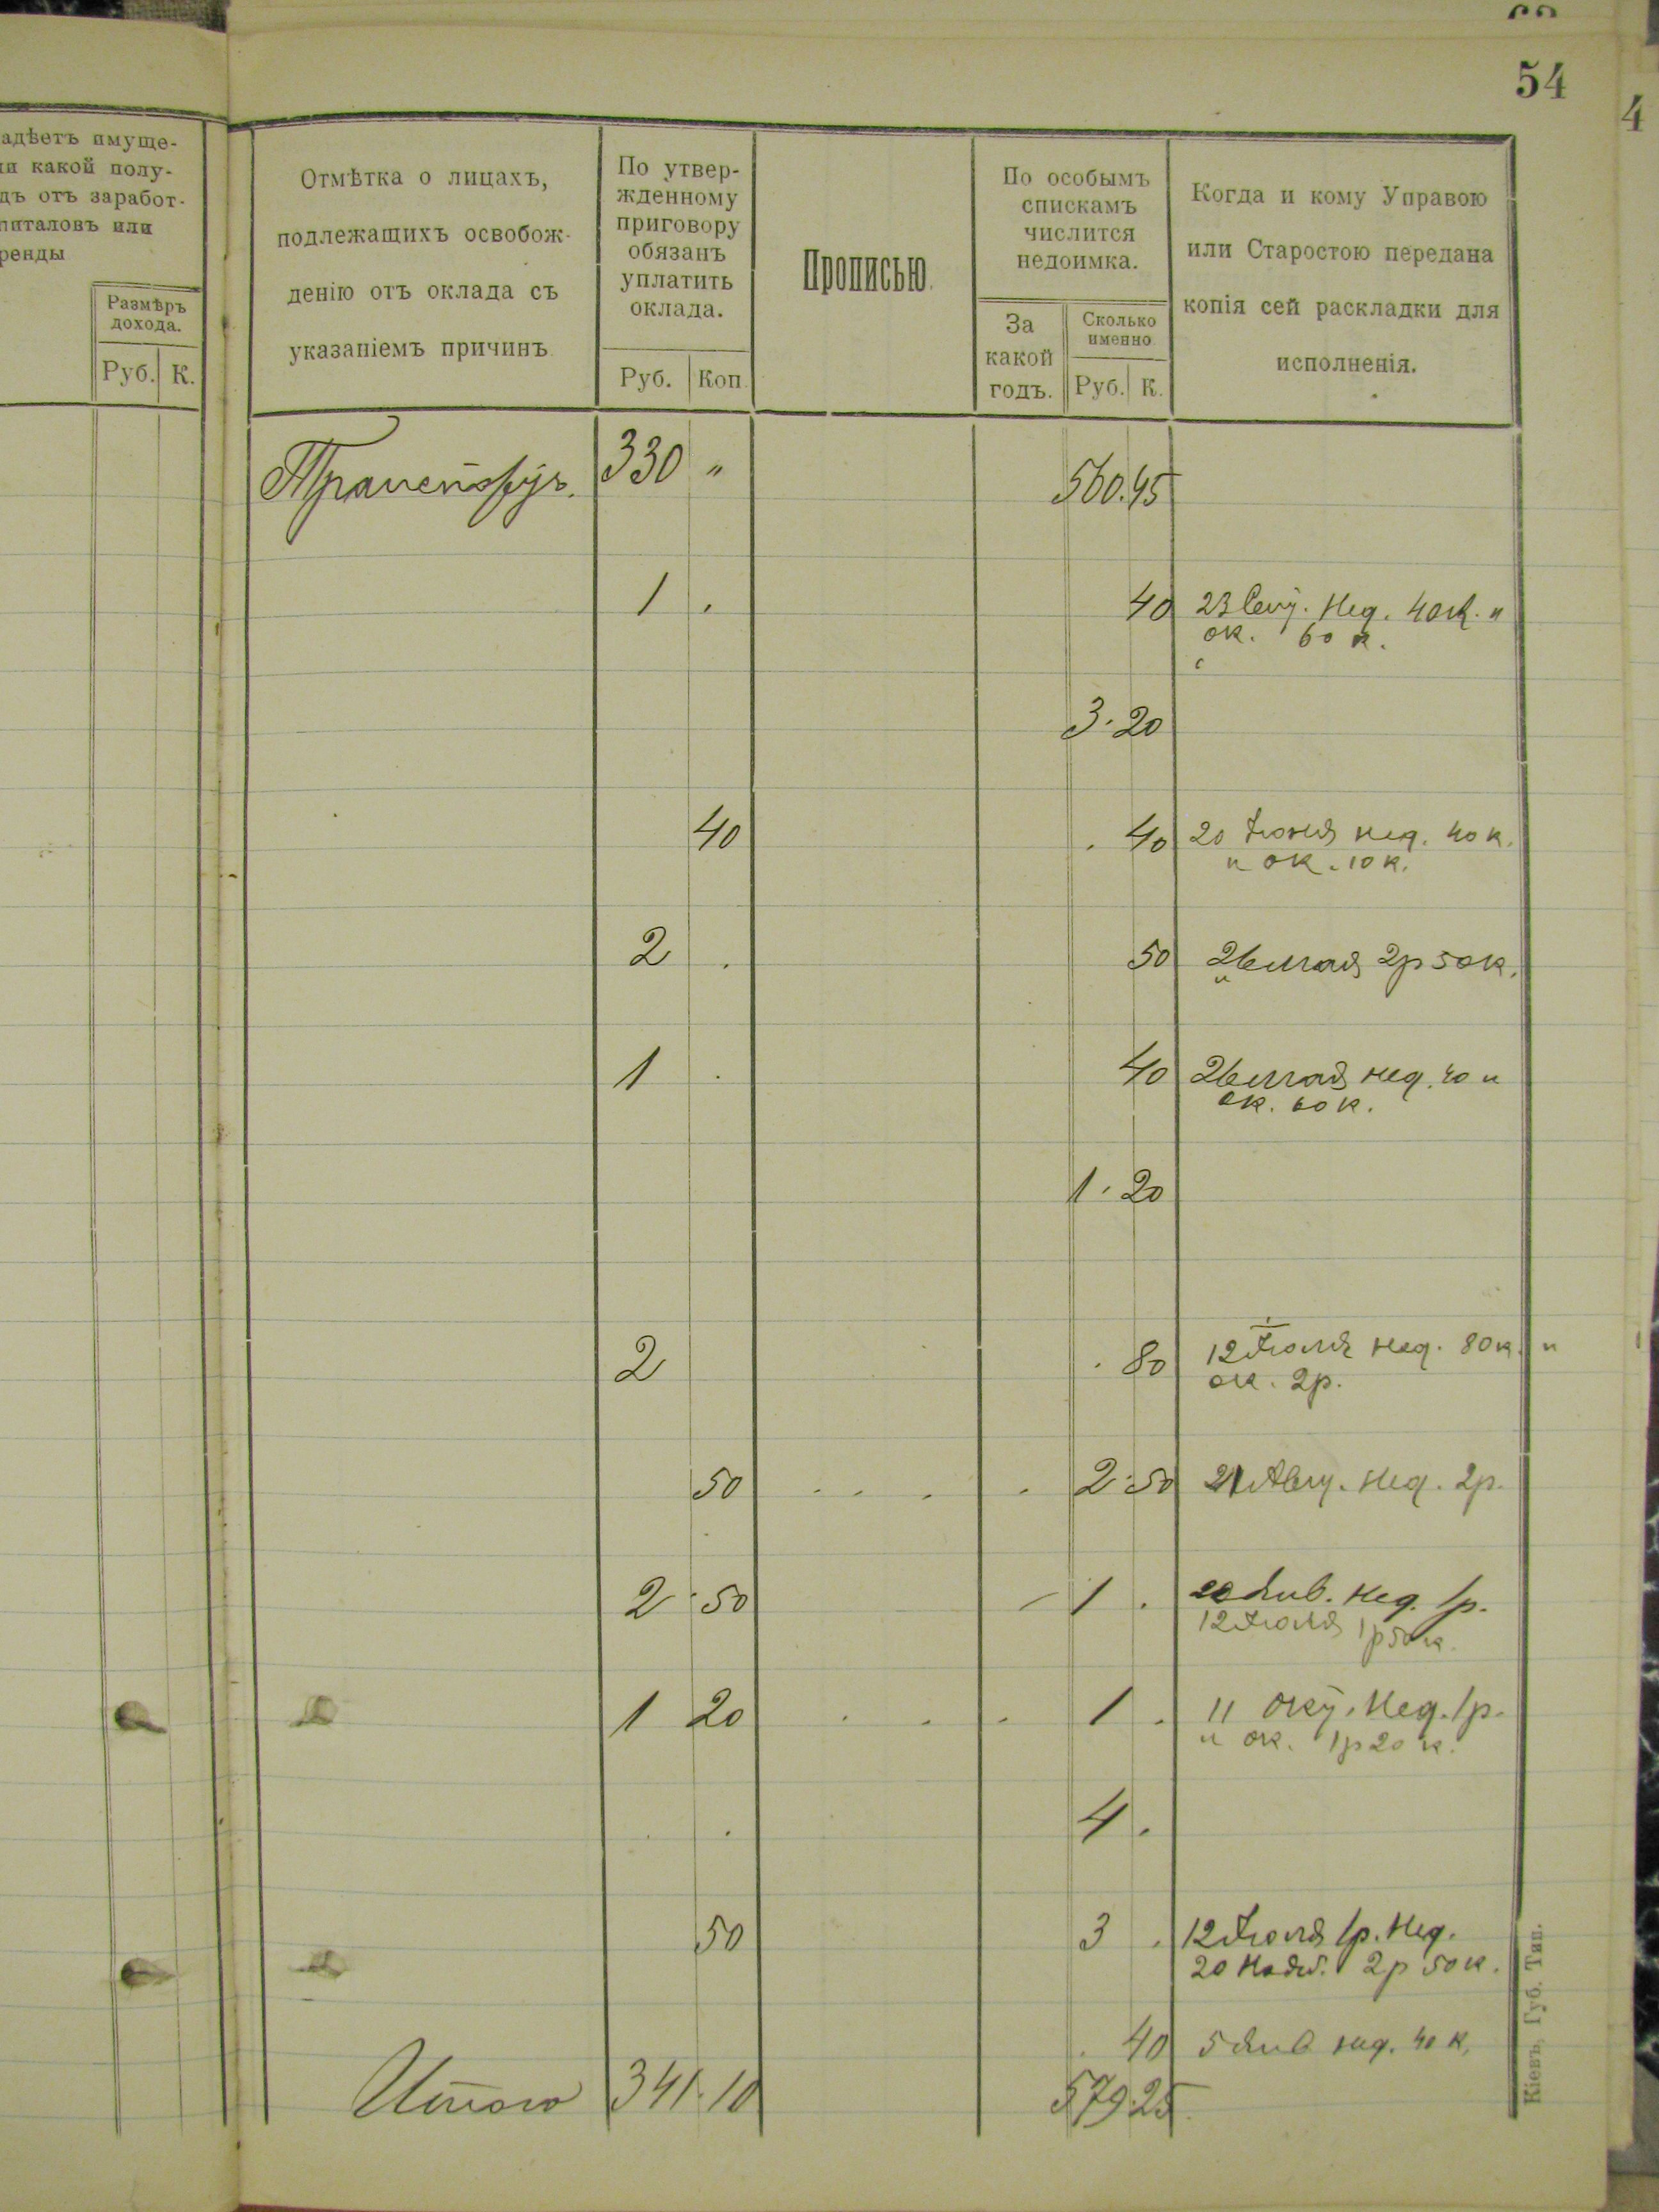 54
4
адѣетъ имуще-
ли какой полу-
дъ отъ заработ-
питаловъ или
ренды
Размѣръ
дохода.
Руб. К.
Отмѣтка о лицахъ,
подлежащихъ освобож-
денію отъ оклада съ
указаніемъ причинъ
По утвер-
жденному
приговору
обязанъ
уплатить
оклада.
Руб. Коп.
Прописью.
По особымъ
спискамъ
числится
недоимка.
За
какой
годъ.
Сколько
именно
Руб. К.
Когда и кому Управою
или Старостою передана
копія сей раскладки для
исполненія.
Транспортъ. 330 " 560.45
1 . 40 23 Сент. Нед. 40 к. и
ок. 60 к.
3.20
40 . 40 20 Іюня нед. 40 к.
и ок. 10 к.
2 . 50 26 мая 2р 50к.
1 . 40 26 мая нед. 40 и
ок. 60 к.
1.20
2 . 80 12 Іюля нед. 80 к. и
ок. 2р.
50 . . . . 2.50 21 Авг. нед. 2р.
2.50 - 1 . 20 Янв. нед. 1р.
12 Іюля 1р 50 к.
1 20 . . . 1 . 11 Окт. Нед. 1р.
и ок. 1р 20 к.
. . 4 .
50 3 . 12 Іюля 1р. Нед.
20 Нояб. 2р 50 к.
. 40 5 Янв нед. 40 к.
Итого 341.10 579.25
Кіевъ, Губ. Тип.